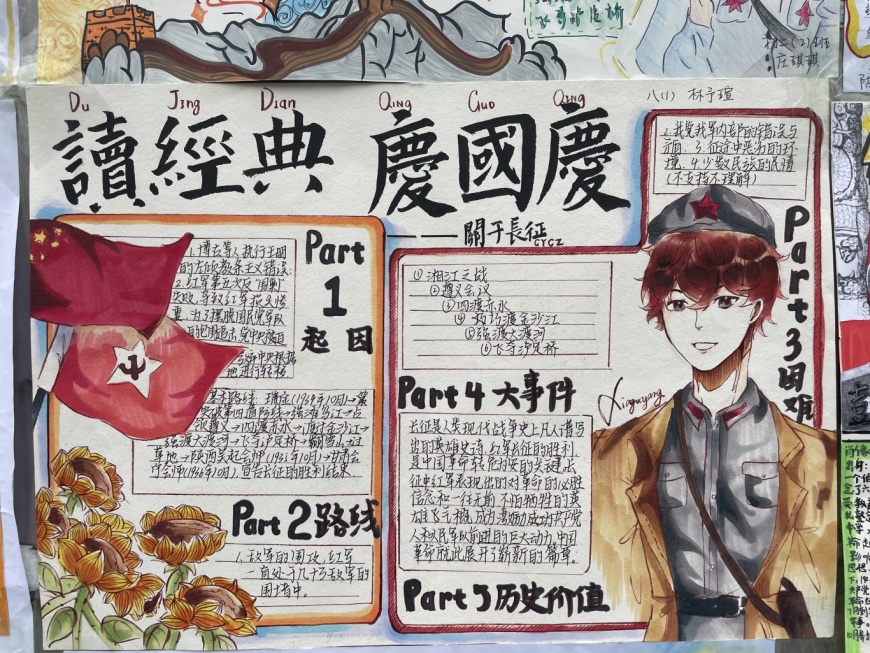 飞夺泸定桥
庄琪琪
Du Jing Dian Qing Guo Qing
八(1) 林予瑄
讀經典 慶國慶
——關于長征
CYCZ
Part 1
起因
1.博古等人执行王明
的左倾教条主义错误
2.红军第五次反"围剿"
失败,导致红军损失惨
重,为了摆脱国民党军队
的包围追击,党中央被迫
地进行转移
路线 瑞金(1934年10月)→
突破第四道防线→强渡乌江→占
领遵义→四渡赤水→渡过金沙江→
强渡大渡河→飞夺泸定桥→翻雪山过
草地→陕西吴起会师(1935年10月)→甘肃会
宁会师(1936年10月),宣告长征的胜利结束
Part 2 路线
1.敌军的围攻,红军
一直处于几十万敌军的
围堵中。
2.我党我军内部的错误与
3.征途中恶劣的环
境 4.少数民族的民情
(不支持不理解)
Part 3 困难
①湘江之战
②遵义会议
③四渡赤水
④巧渡金沙江
⑤强渡大渡河
⑥飞夺泸定桥
Part 4 大事件
长征是人类现代战争史上凡人谱写
出的英雄史诗,红军长征的胜利
是中国革命转危为安的关键,长
征中红军表现出的对革命的必胜
信念和一往无前、不怕牺牲的英
雄主义气概,成为激励成功共产党
人和人民军队前进的巨大动力,中国
革命就此展开了崭新的篇章。
Part 5 历史价值